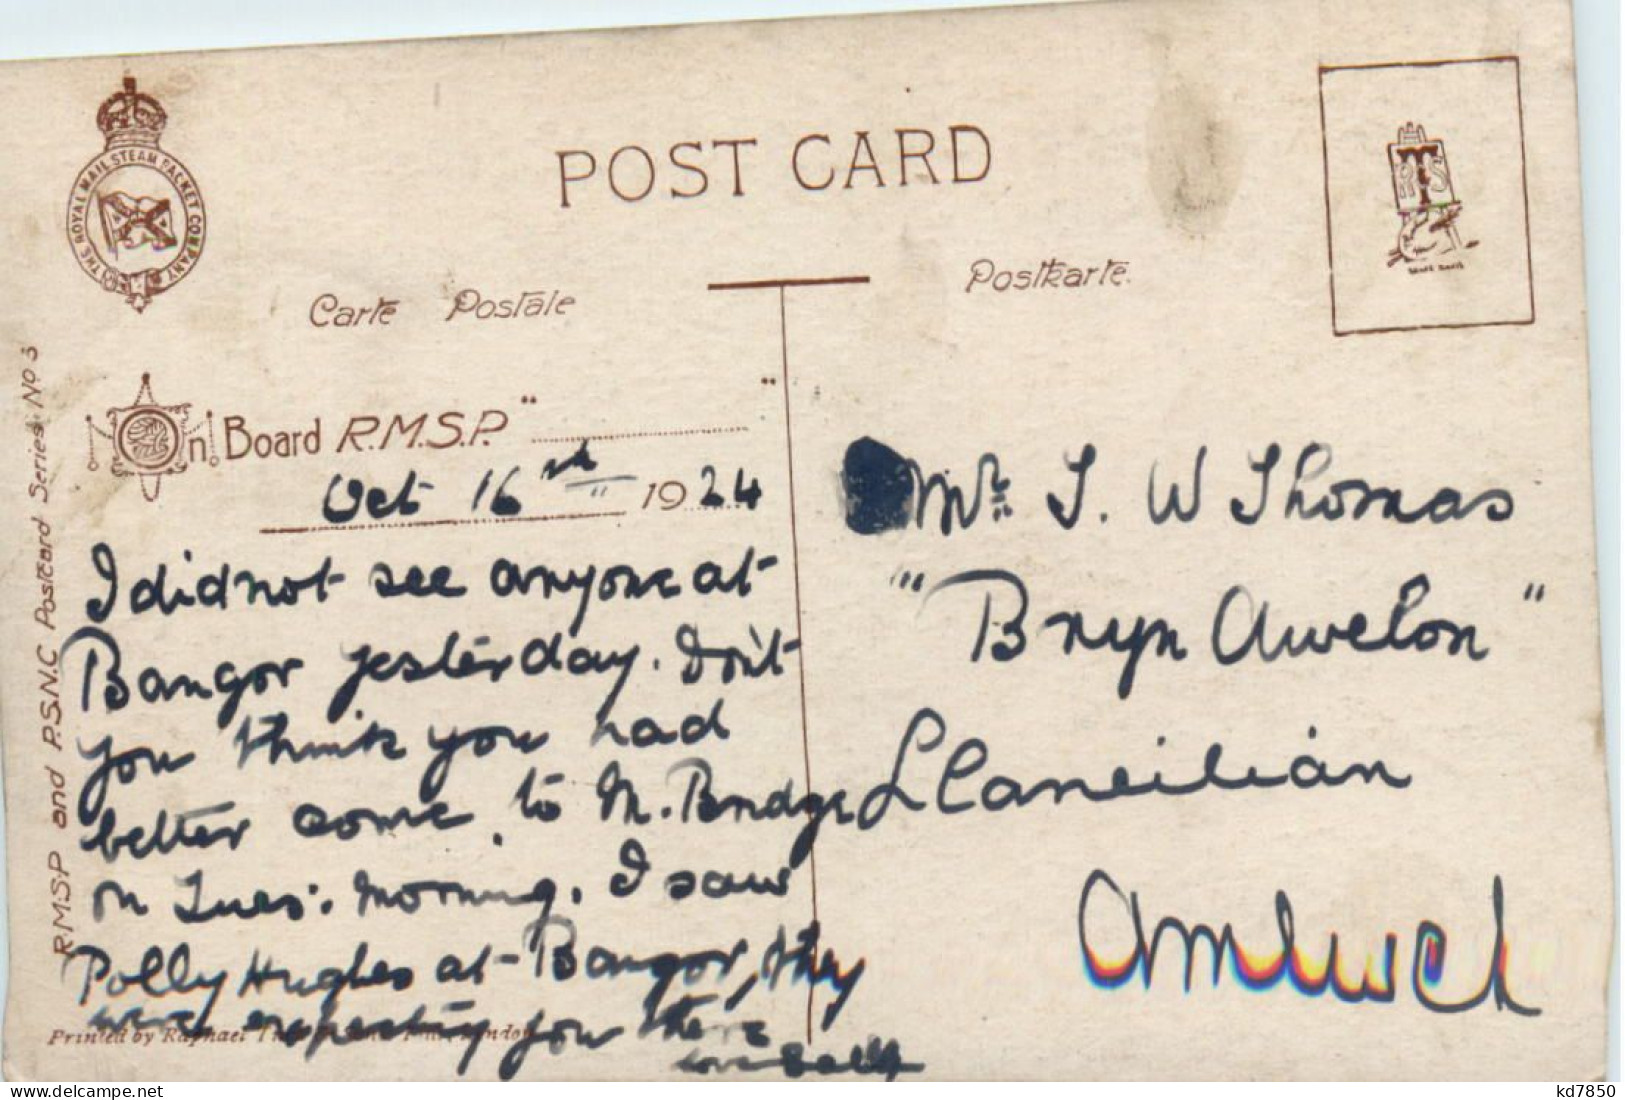 THE ROYAL MAIL STEAM PACKET COMPANY
POST CARD
Carte Postale
Postkarte.
RTS
On Board R.M.S.P. " "
Oct 16th 1924
I did not see anyone at
Bangor yesterday. Don't
you think you had
better come to M. Bridge
on Tues: morning. I saw
Polly Hughes at Bangor, they
were expecting you there
love
Mr. T. W Thomas
"Bryn Awelon"
Llaneilian
Amlwch
R.M.S.P and P.S.N.C Postcard Series No 3
Printed by Raphael
kd7850